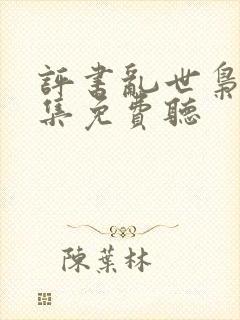 評書亂世梟
集免費聽
陳葉林